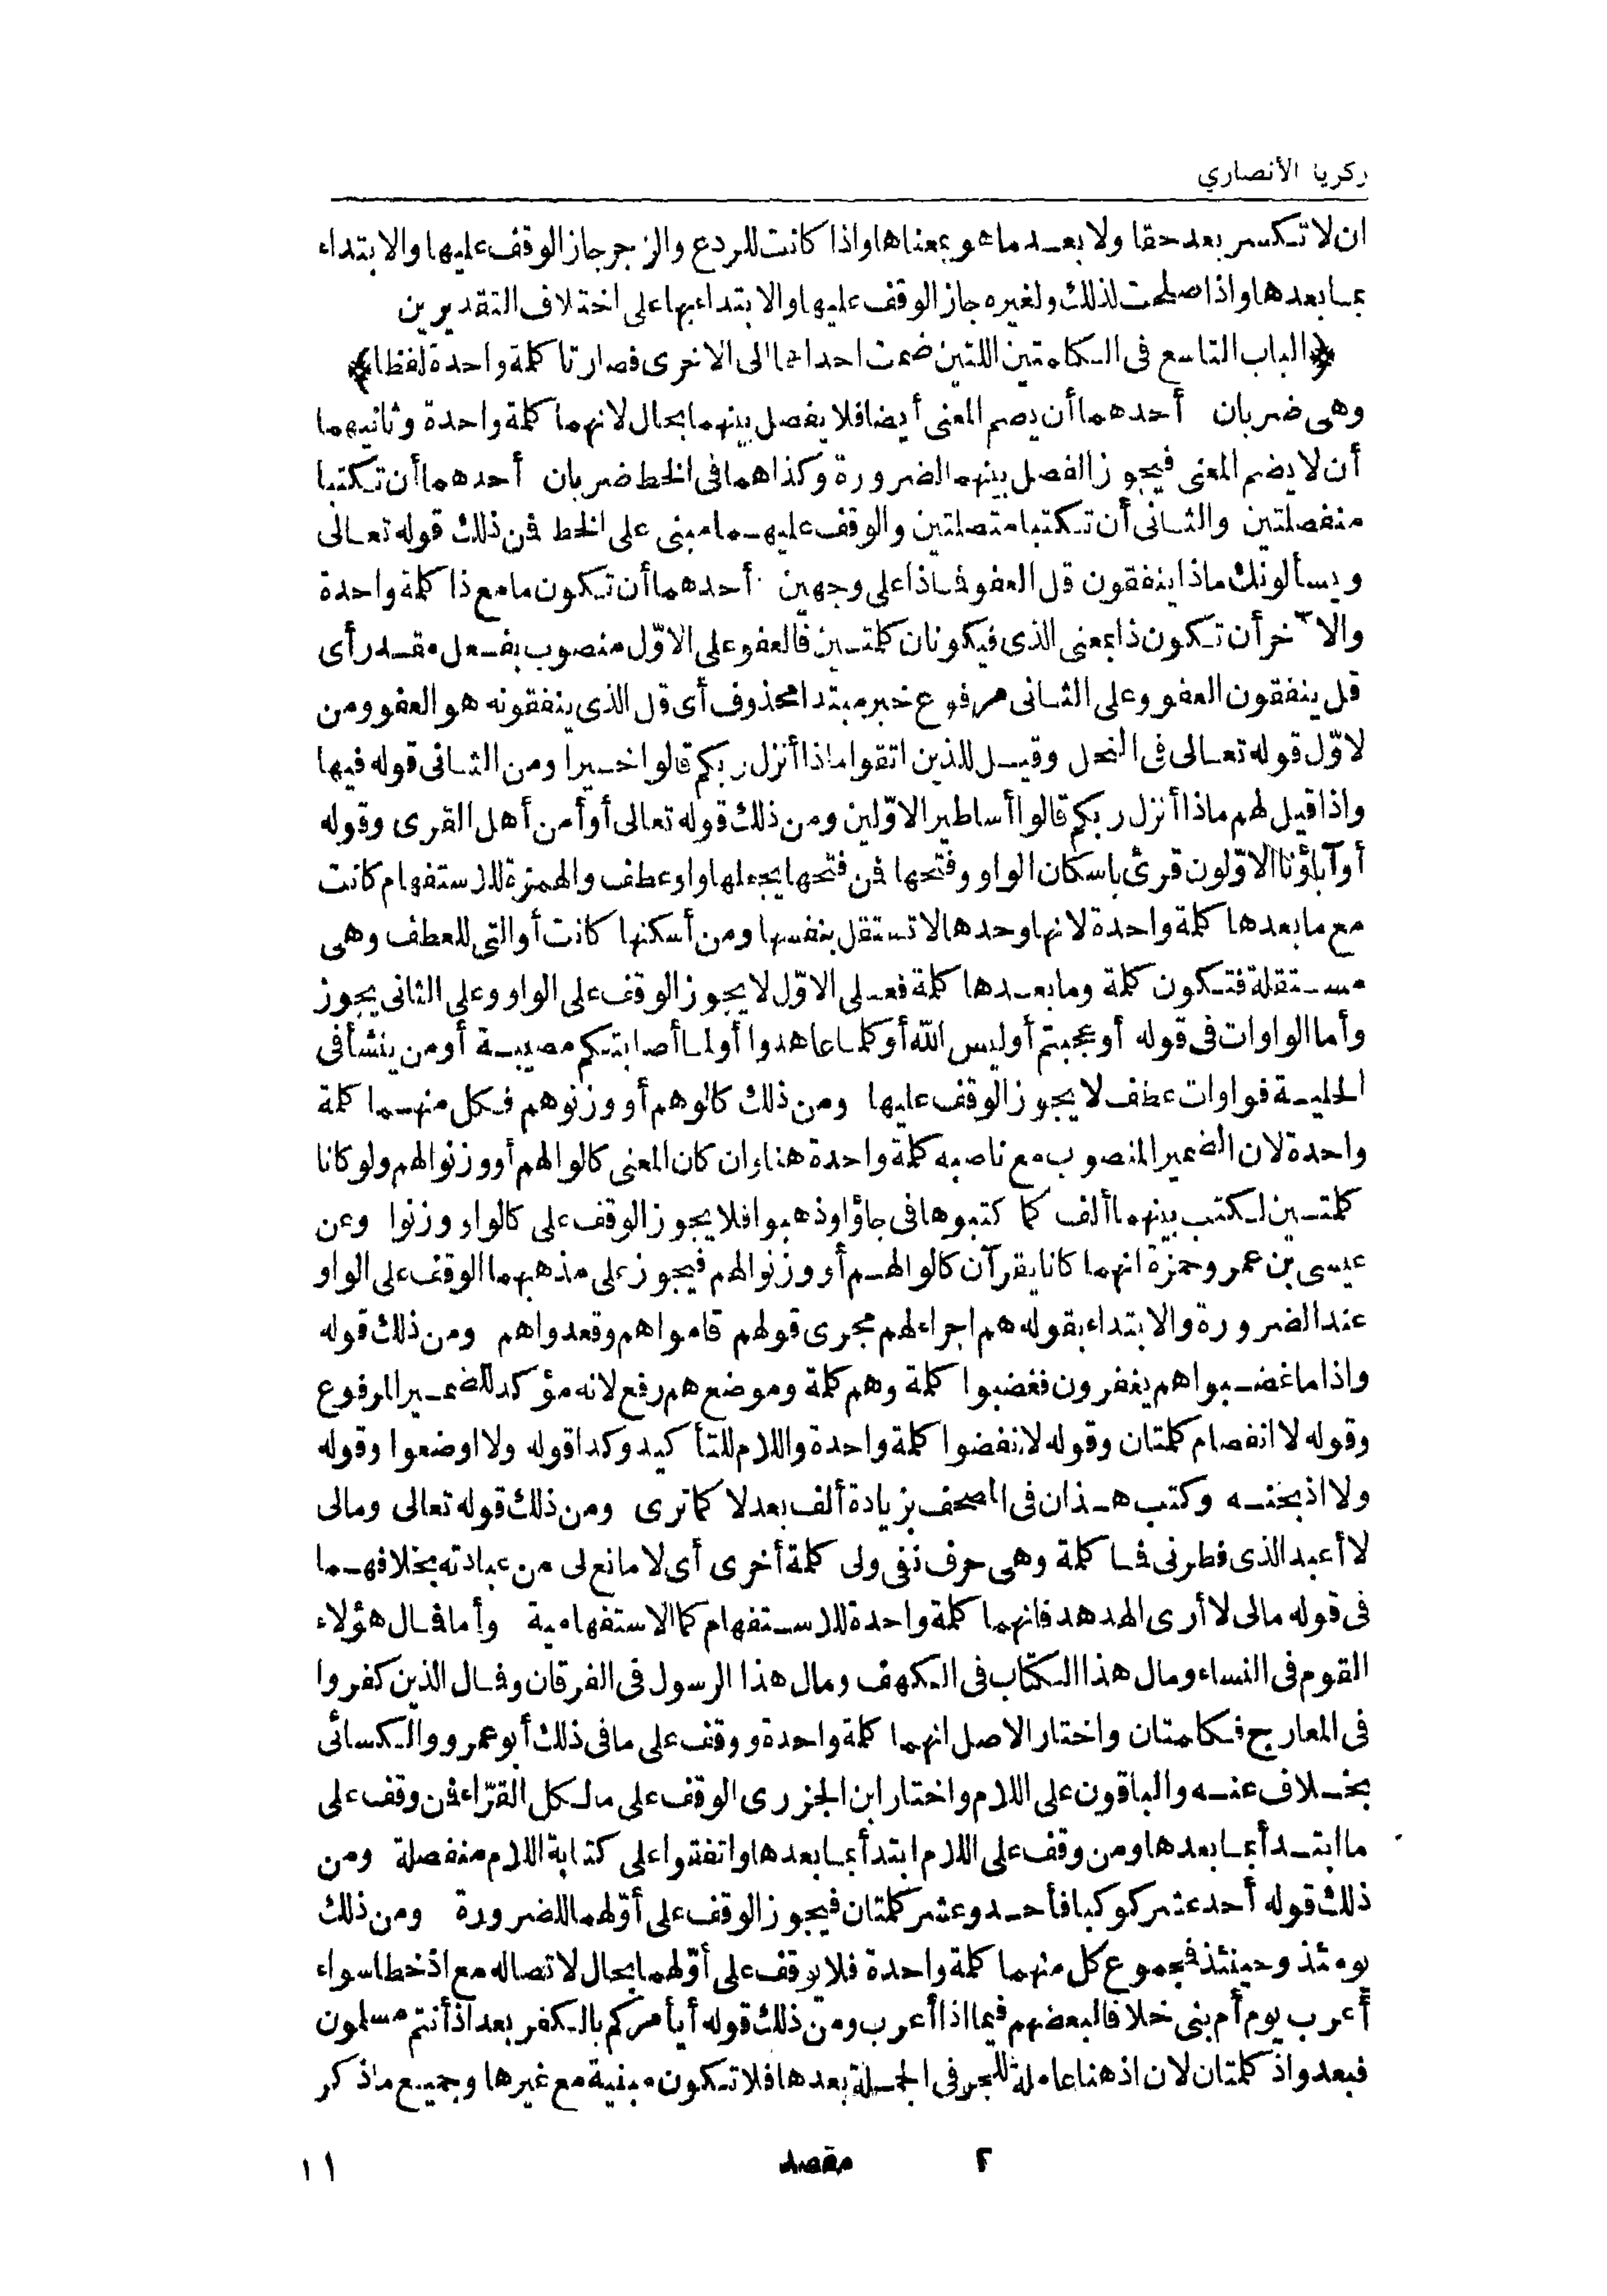 زكريا الأنصاري
ان لا تكسر بعد حقا ولا بعد ما هو بمعناها واذا كانت للردع والزجر جاز الوقف عليها والابتداء
بما بعدها واذا صلحت لذلك ولغيره جاز الوقف عليها والابتداء بها على اختلاف التقديرين
﴿الباب التاسع فى الكلمتين اللتين ضمت احداهما الى الاخرى فصارتا كلمة واحدة لفظا﴾
وهى ضربان أحدهما أن يصم المعنى أيضا فلا يفصل بينهما بحال لانهما كلمة واحدة وثانيهما
أن لا يضم المعنى فيجوز الفصل بينهما لضرورة وكذاهما فى الخط ضربان أحدهما أن تكتبا
منفصلتين والثانى أن تكتبا متصلتين والوقف عليهما مبنى على الخط فن ذلك قوله تعالى
ويسألونك ماذا ينفقون قل العفو فماذا على وجهين أحدهما أن تكون ما مع ذا كلمة واحدة
والآخر أن تكون ذا بمعنى الذى فيكونان كلمتين فالعفو على الاوّل منصوب بفعل مقدر أى
قل ينفقون العفو وعلى الثانى مرفوع خبر مبتدا محذوف أى قل الذى ينفقونه هو العفو ومن
لاوّل قوله تعالى فى النحل وقيل للذين اتقوا ماذا أنزل ربكم قالوا خيرا ومن الثانى قوله فيها
واذا قيل لهم ماذا أنزل ربكم قالوا أساطير الاوّلين ومن ذلك قوله تعالى أوأمن أهل القرى وقوله
أوآباؤنا الاوّلون قرئ باسكان الواو وفتحها فن فتحها يجعلها واو عطف والهمزة للاستفهام كانت
مع ما بعدها كلمة واحدة لانها وحدها لا تستقل بنفسها ومن أسكنها كانت أو التى للعطف وهى
مستقلة فتكون كلمة وما بعدها كلمة فعلى الاوّل لا يجوز الوقف على الواو وعلى الثانى يجوز
وأما الواوات فى قوله أوعجبتم أوليس الله أوكلما عاهدوا أولما أصابتكم مصيبة أومن ينشأ فى
الحلية فواوات عطف لا يجوز الوقف عليها ومن ذلك كالوهم أو وزنوهم فكل منهما كلمة
واحدة لان الضمير المنصوب مع ناصبه كلمة واحدة هنا وان كان المعنى كالوا لهم أو وزنوا لهم ولو كانا
كلمتين لكتب بينهما ألف كما كتبوها فى جاؤا وذهبوا فلا يجوز الوقف على كالوا ووزنوا وعن
عيسى بن عمر وحمزة انهما كانا يقرآن كالوا لهم أو وزنوا لهم فيجوز على مذهبهما الوقف على الواو
عند الضرورة والابتداء بقوله هم اجراء لهم مجرى قولهم قاموا هم وقعدوا هم ومن ذلك قوله
واذا ما غضبوا هم يغفرون فغضبوا كلمة وهم كلمة وموضع هم رفع لانه مؤكد للضمير المرفوع
وقوله لا انفصام كلمتان وقوله لانفضوا كلمة واحدة واللام للتأكيد وكذا قوله ولا اوضعوا وقوله
ولا اذبحنه وكتب هذان فى المصحف بزيادة ألف بعد لا كما ترى ومن ذلك قوله تعالى ومالى
لا أعبد الذى فطرنى فما كلمة وهى حرف نفى ولى كلمة أخرى أى لا مانع لى من عبادته بخلافهما
فى قوله مالى لا أرى الهدهد فانهما كلمة واحدة للاستفهام كما الاستفهامية وأما فمال هؤلاء
القوم فى النساء ومال هذا الكتاب فى الكهف ومال هذا الرسول فى الفرقان وفمال الذين كفروا
فى المعارج فكلمتان واختار الاصل انهما كلمة واحدة ووقف على ما فى ذلك أبو عمرو والكسائى
بخلاف عنه والباقون على اللام واختار ابن الجزرى الوقف على ما لكل القرّاء فن وقف على
ما ابتدأ بما بعدها ومن وقف على اللام ابتدأ بما بعدها واتفقوا على كتابة اللام منفصلة ومن
ذلك قوله أحد عشر كوكبا فأحد وعشر كلمتان فيجوز الوقف على أوّلهما للضرورة ومن ذلك
يومئذ وحينئذ فمجموع كل منهما كلمة واحدة فلا يوقف على أوّلهما بحال لاتصاله مع اذ خطا سواء
أعرب يوم أم بنى خلافا لبعضهم فيما اذا أعرب ومن ذلك قوله أيأمركم بالكفر بعد اذ أنتم مسلمون
فبعد واذ كلمتان لان اذ هنا عاملة للجر فى الجملة بعدها فلا تكون مبنية مع غيرها وجميع ما ذكر
٢ مقصد ١١